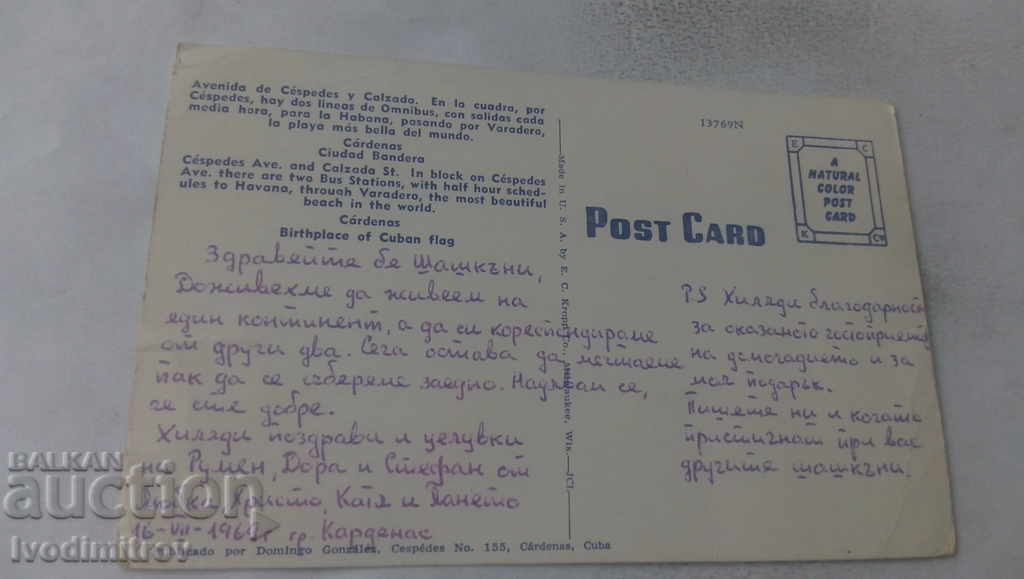 Avenida de Céspedes y Calzada. En la cuadra, por
Céspedes, hay dos líneas de Omnibus, con salidas cada
media hora, para la Habana, pasando por Varadero,
la playa más bella del mundo.
Cárdenas
Ciudad Bandera
Céspedes Ave. and Calzada St. In block on Céspedes
Ave. there are two Bus Stations, with half hour sched-
ules to Havana, through Varadero, the most beautiful
beach in the world.
Cárdenas
Birthplace of Cuban flag
Здравейте бе Шашкъни,
Доживехме да живеем на
един континент, а да си кореспондираме
от други два. Сега остава да мечтаеме
пак да се събереме заедно. Надявам се,
че сте добре.
Хиляди поздрави и целувки
на Румен, Дора и Стефан от
Христо, Катя и Пането
16-VII-196 г гр. Карденас
Publicado por Domingo González, Cespédes No. 155, Cárdenas, Cuba
Made in U. S. A. by E. C. Kropp Co., Milwaukee, Wis.
13769N
E C
A
NATURAL
COLOR
POST
CARD
K CO
POST CARD
PS Хиляди благодарности
за оказаното гостоприемство
на домочадието и за
моя подарък.
Пишете ни и когато
пристигнат при вас
другите шашкъни.
BALKAN
auction
Ivodimitrov